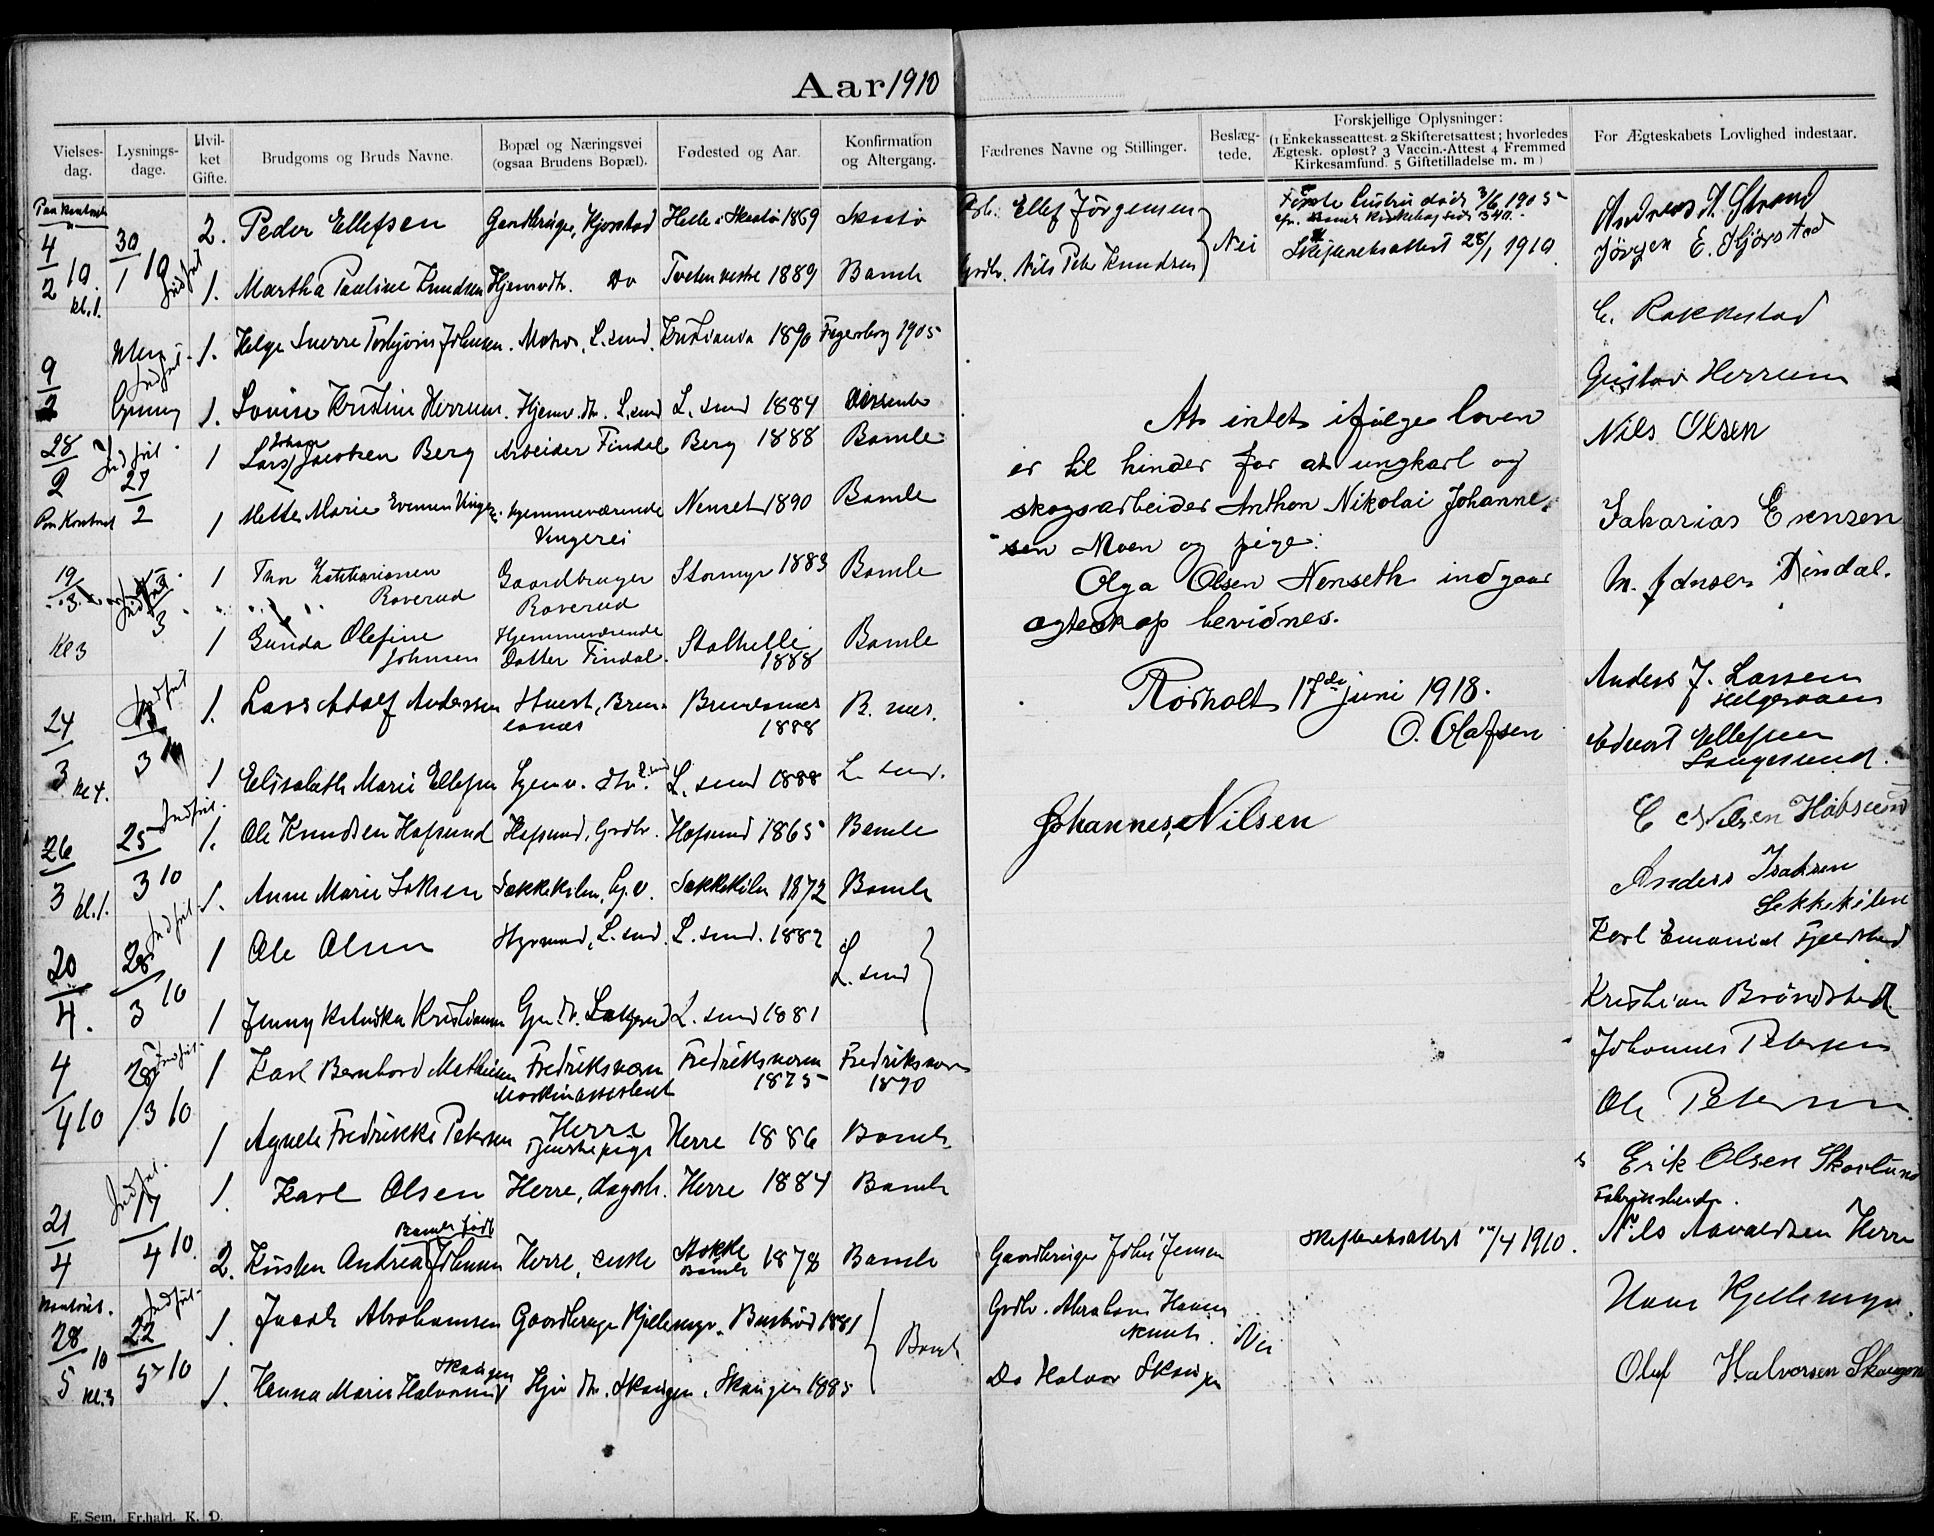 Aar 1910
Vielses-dag. Lysnings-dage. Hvil-ket Gifte. Brudgoms og Bruds Navne. Bopæl og Næringsvei (ogsaa Brudens Bopæl). Fødested og Aar. Konfirmation og Altergang. Fædrenes Navne og Stillinger. Beslæg-tede. Forskjellige Oplysninger: (1 Enkekasseattest. 2 Skifteretsattest; hvorledes Ægtesk. opløst? 3 Vaccin.-Attest 4 Fremmed Kirkesamfund. 5 Giftetilladelse m. m) For Ægteskabets Lovlighed indestaar.
4/2 10. 30/1 10 2. Peder Ellefsen Gaardbruger, Hjorstad Helle i Skaatø 1869 Skaatø Ellef Jørgensen Nei 3/6 1905 Andreas A. Strand
kl. 1. 1. Martha Pauline Knudsen Hjemvdtr. Do Tveten vestre 1889 Bamle Grdbr. Nils Peter Knudsen Skifteretsattest 28/1 1910. Jørgen E. Hjørstad
9/2 1. Helge Sverre Torbjørn Johnsen. Matros, L. sund. Kristiania 1890 Fagerborg 1905 C. Rakkestad
1. Lovise Kristine Herrum. Hjemv. dtr. L. sund L. sund 1884 Gustav Herrum
28/2 Indført. 1 Lars Johan Jacobsen Berg Arbeider Findal Berg 1888 Bamle Nils Olsen
27/2 1 Mette Marie Evensen Hjemmeværende Vingerei Nenset 1890 Bamle Sakarias Evensen
19/3 1 Thor Zakkariasen Roverud Gaardbruger Roverud Stormyr 1883 Bamle M. Jansen Findal.
Kl 3 1 Gunda Olefine Johnsen Hjemmeværende Datter Findal. Stathelle 1888 Bamle
24/3 1. Lars Adolf Andersen Brevik 1888 Anders J. Larsen Helgeraaen
kl 4. 1 Elisabeth Marie Ellefsen Hjemv. dtr. L. sund L. sund 1888 L. sund. Edvart Ellefsen Langesund.
26/3 kl. 1. 25/3 10 Indført. 1. Ole Knudsen Hafsund Hafsund, Grdbr. Hafsund 1865 Bamle C Nilsen Habsund
1. Anne Marie Isaksen Sækkekilen, Hj. v. Sækkekilen 1872 Bamle Anders Isaksen Sekkekilen
20/4. 28/3 10 Indført 1 Ole Olsen Styrmand, L. sund. L. sund. 1882 L. sund Karl Emanuel
1 Jenny Kristiansen L. sund 1881 Kristian Brøndsted
4/4 10 28/3 10 Indført. 1 Karl Bernhard Mathisen Fredriksværn Maskinassistent Fredriksværn 1875 Fredriksværn 1890 Johannes Petersen
1 Agnete Fredrikke Petersen Herre Tjenstepige Herre 1886 Bamle Ole Petersen.
21/4 17/4 10. Indført. 1. Karl Olsen Herre, dagarb. Herre 1884 Bamle Erik Olsen Skoglund Fabriksarbeider.
2. Kirsten Andrea Johnsen Herre, enke Stokke Bamle 1878 Bamle Gaardbruger John Jensen Skifteretsattest /4 1910. Nils Aavaldsen Herre
28/5 10 kl. 3 22/5 10 Indført. 1. Jacob Abrahamsen Gaardbruger Kjellemyr. 1881 Bamle Grdbr. Abraham Hansen Nei Hans Kjellemyr.
1. Hanna Marie Halvorsen Skaugen Hjv. dtr. Skaugen. Skaugen 1885 Do Halvor Skaugen Oluf Halvorsen Skaugen
At intet ifølge loven
er til hinder for at ungkarl og
skogsarbeider Anthon Nikolai Johanne-
sen Moen og pige:
Olga Olsen Nenseth indgaar
egteskap bevidnes.
Rørholt 17de juni 1918.
O. Olafsen
Johannes Nilsen
E. Sem, Fr.hald. K. D.